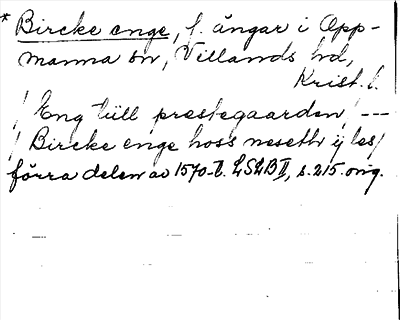 * Bircke enge, f. ängar i Opp-
manna sn, Villands hd,
Krist. l.
/ Eng tiill prestegaarden / ---
/ Bircke enge hoss neseth ij les /
förra delen av 1570-t. LSLB II, s. 215. orig.